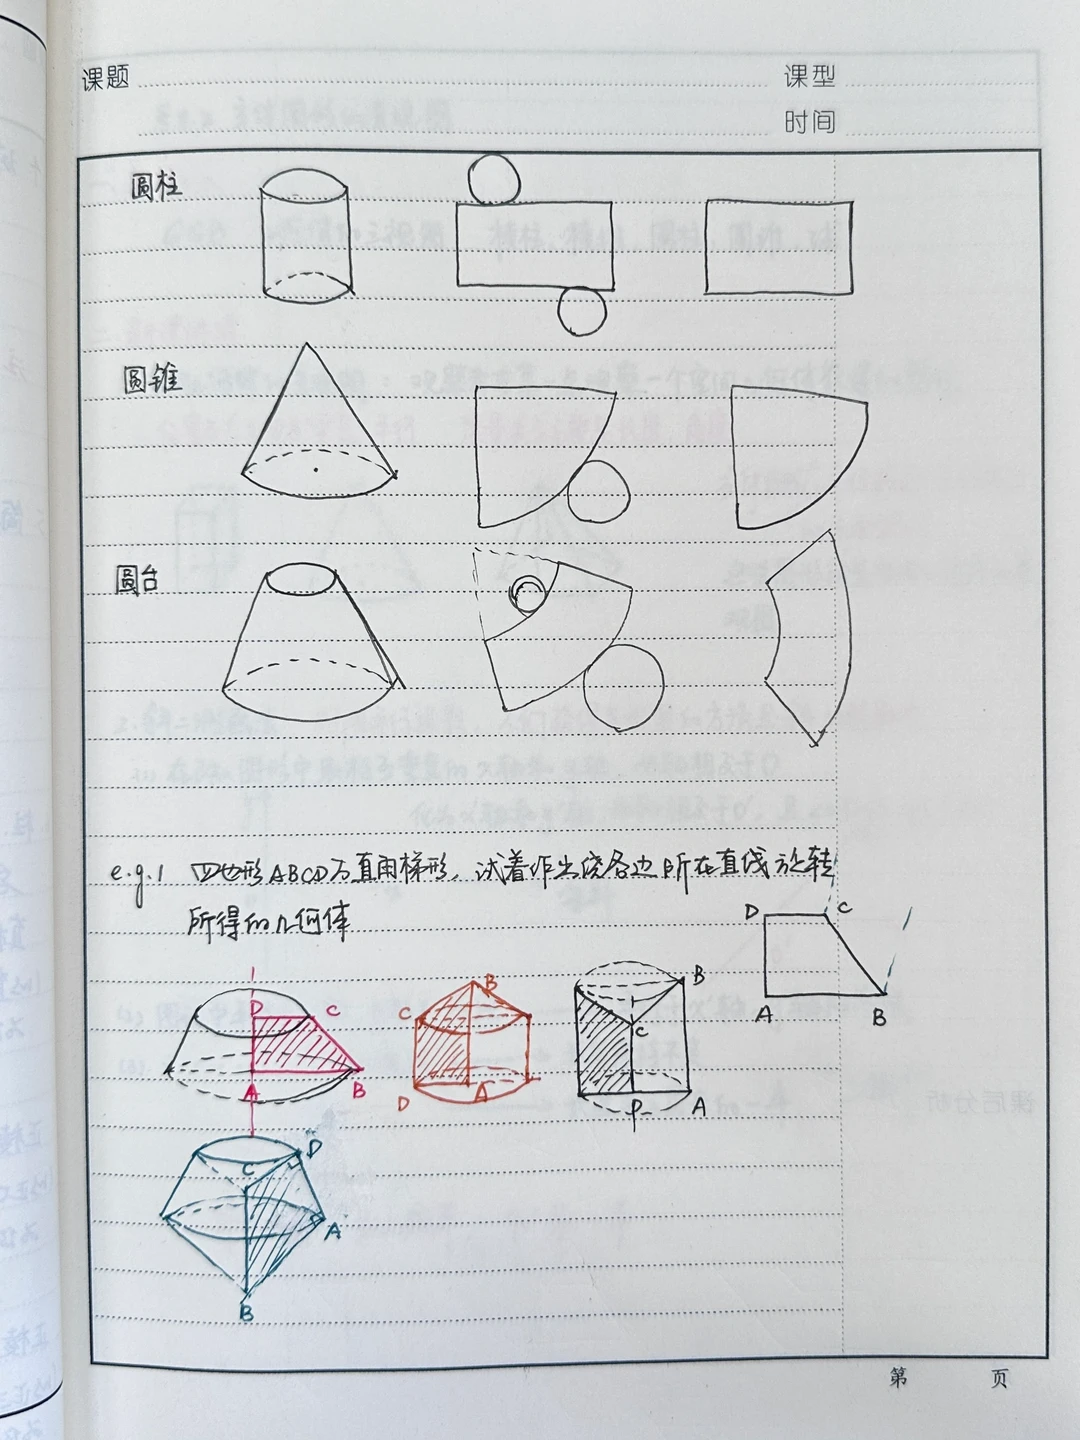 课题
课型
时间
圆柱
圆锥
圆台
e.g.1 四边形ABCD为直角梯形,试着作出绕各边所在直线旋转
所得的几何体
D C
A B
D C
A B
B
C
D A
B
C
D A
C D
A
B
第 页